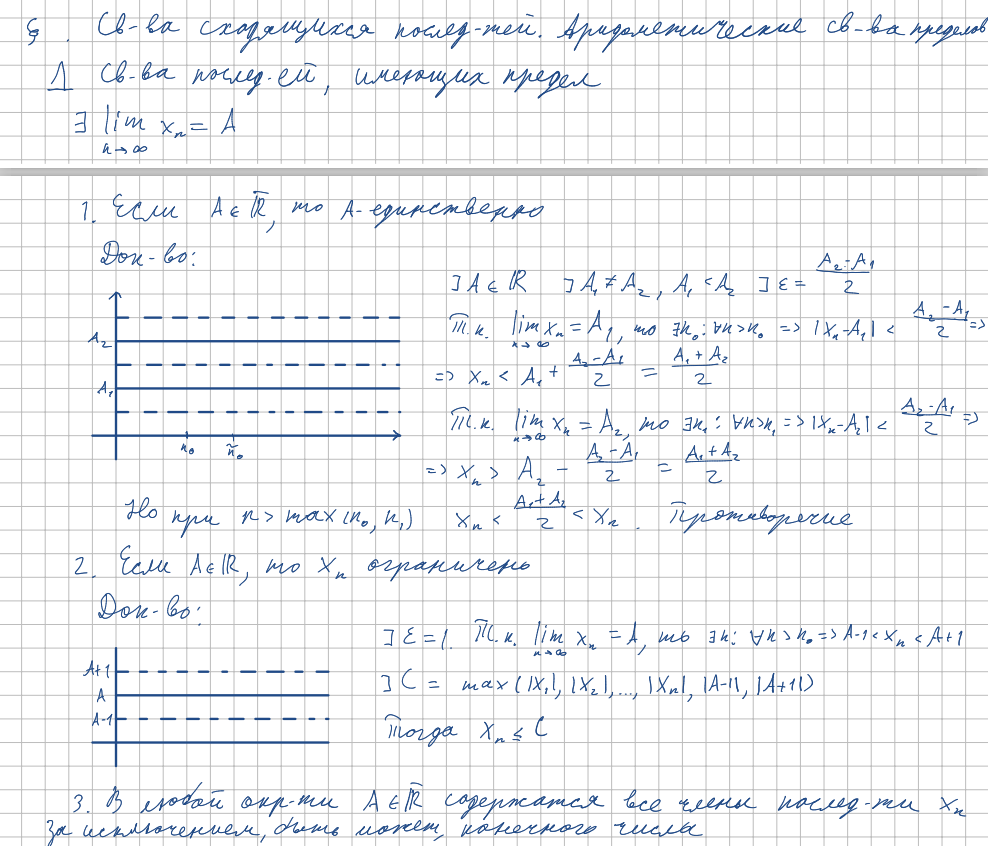 § . Св-ва сходящихся послед-тей. Арифметические св-ва пределов
1 Св-ва послед-ей, имеющих предел
∃ lim xₙ = A
n→∞
1. Если A ∈ R̄, то A - единственно
Док-во:
] A ∈ ℝ ] A₁ ≠ A₂, A₁ < A₂ ] ε = (A₂-A₁)/2
Т.к. lim xₙ = A₁, то ∃n₀: ∀n>n₀ => |xₙ-A₁| < (A₂-A₁)/2 =>
n→∞
=> xₙ < A₁ + (A₂-A₁)/2 = (A₁+A₂)/2
Т.к. lim xₙ = A₂, то ∃n₁: ∀n>n₁ => |xₙ-A₂| < (A₂-A₁)/2 =>
n→∞
=> xₙ > A₂ - (A₂-A₁)/2 = (A₁+A₂)/2
A₂
A₁
n₀ ñ₀
Но при n > max(n₀, n₁) xₙ < (A₁+A₂)/2 < xₙ. Противоречие
2. Если A ∈ ℝ, то xₙ ограничень
Док-во:
] ε = 1. Т.к. lim xₙ = A, то ∃n: ∀n>n₀ => A-1 < xₙ < A+1
n→∞
] C = max(|x₁|, |x₂|, ..., |xₙ|, |A-1|, |A+1|)
Тогда xₙ ≤ C
A+1
A
A-1
3. В любой окр-ти A ∈ R̄ содержатся все члены послед-ти xₙ
за исключением, быть может, конечного числа